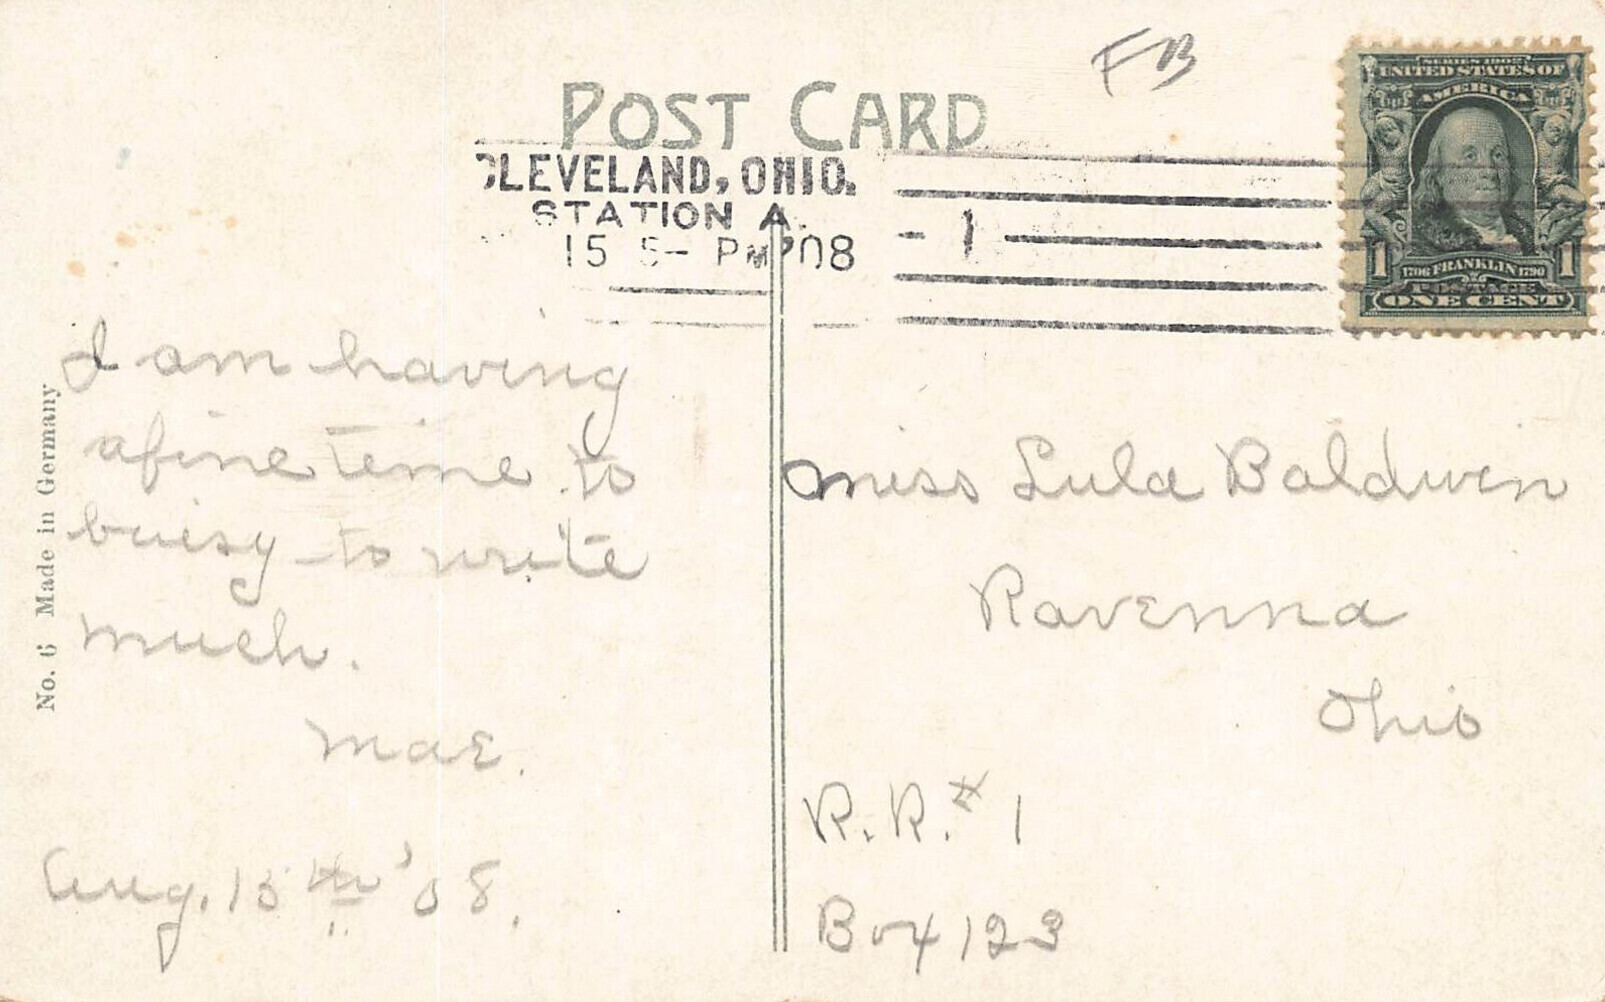 FB
POST CARD
CLEVELAND, OHIO.
STATION A.
15 5- PM '08
1
SERIES 1902
UNITED STATES OF
AMERICA
1 1
1706 FRANKLIN 1790
POSTAGE
ONE CENT
No. 6 Made in Germany
I am having
a fine time. to
buisy to write
much.
Mae.
Aug. 15th '08.
Miss Lula Baldwin
Ravenna
Ohio
R.R. # 1
Box 123